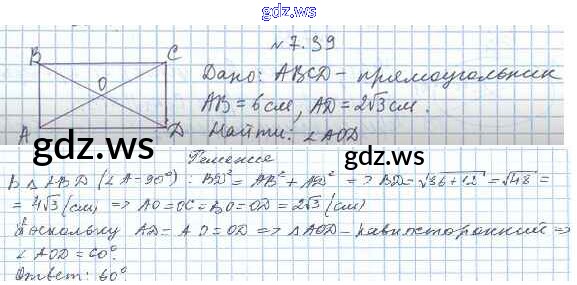 gdz.ws
№ 7.39
B C
Дано: ABCD – прямоугольник
O
AB = 6 см, AD = 2√3 см.
A D
Найти: ∠AOD
gdz.ws gdz.ws
Решение
В △ ABD (∠A = 90°): BD² = AB² + AD² => BD = √36+12 = √48 =
= 4√3 (см) => AO = OC = BO = OD = 2√3 (см)
Поскольку AD = AO = OD => △AOD – равносторонний =>
∠AOD = 60°.
Ответ: 60°